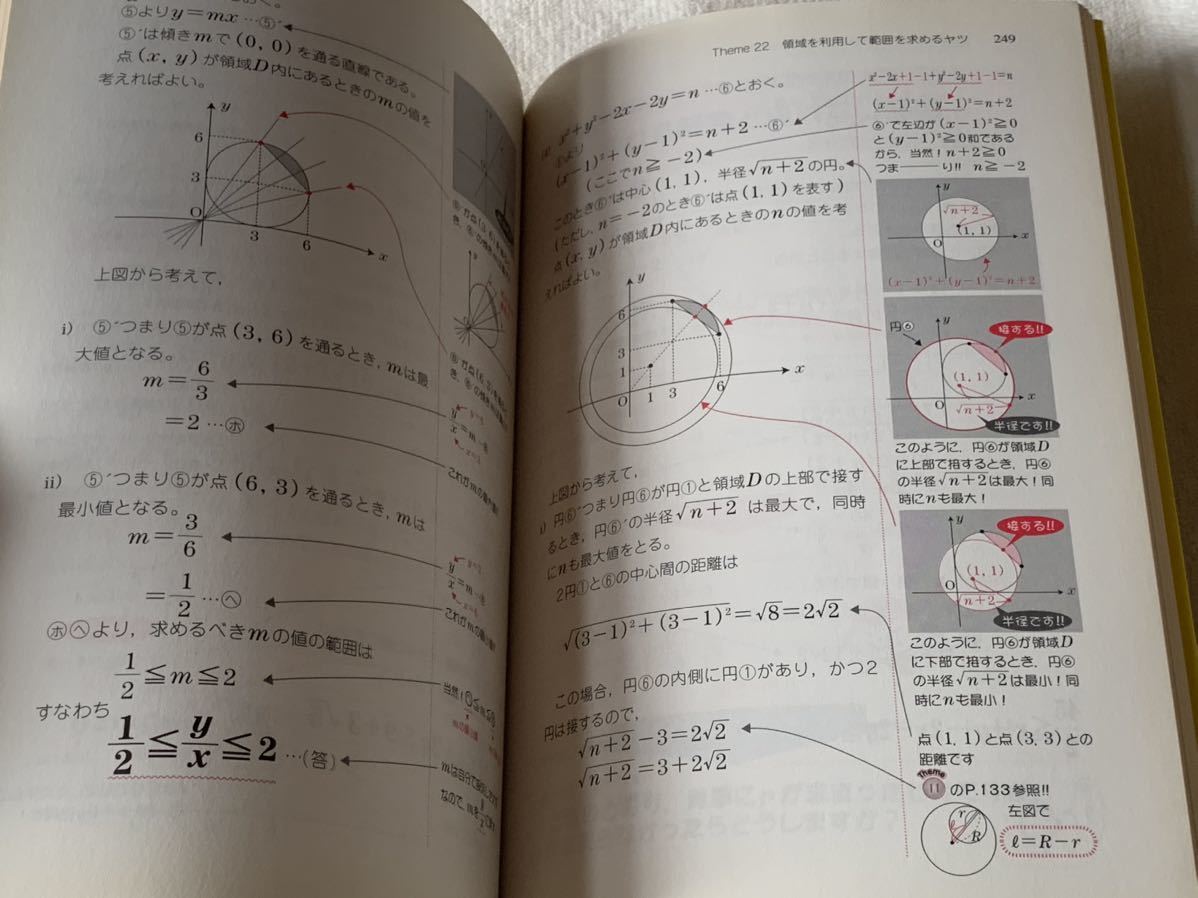 ⑤よりy=mx …⑤´
⑤´は傾きmで(0, 0)を通る直線である。
点(x, y)が領域D内にあるときのmの値を
考えればよい。
y
6
3
O
3
6
x
上図から考えて,
i) ⑤´つまり⑤が点(3, 6)を通るとき, mは最
大値となる。
m=6/3
=2 …㋭
ii) ⑤´つまり⑤が点(6, 3)を通るとき, mは
最小値となる。
m=3/6
=1/2 …㋬
㋭㋬より, 求めるべきmの値の範囲は
1/2≦m≦2
すなわち
1/2≦y/x≦2 …(答)
Theme 22 領域を利用して範囲を求めるヤツ 249
x²+y²−2x−2y=n …⑥とおく。
⑥より
(x−1)²+(y−1)²=n+2 …⑥´
(ここでn≧−2)
このとき⑥´は中心(1, 1), 半径√n+2の円。
(ただし, n=−2のとき⑥´は点(1, 1)を表す)
点(x, y)が領域D内にあるときのnの値を考
えればよい。
y
6
3
1
O
1
3
6
x
上図から考えて,
i) 円⑥´つまり円⑥が円①と領域Dの上部で接す
るとき, 円⑥´の半径√n+2 は最大で, 同時
にnも最大値をとる。
2円①と⑥の中心間の距離は
√(3−1)²+(3−1)²=√8=2√2
この場合, 円⑥の内側に円①があり, かつ2
円は接するので,
√n+2−3=2√2
√n+2=3+2√2
x²−2x+1−1+y²−2y+1−1=n
(x−1)²+(y−1)²=n+2
⑥´で左辺が(x−1)²≧0
と(y−1)²≧0和である
から, 当然！n+2≧0
つま――り!! n≧−2
y
√n+2
(1, 1)
O
x
(x−1)²+(y−1)²=n+2
円⑥
y
接する!!
(1, 1)
O
x
√n+2
半径です!!
このように, 円⑥が領域D
に上部で接するとき, 円⑥
の半径√n+2は最大！同
時にnも最大！
y
接する!!
(1, 1)
O
x
√n+2
半径です!!
このように, 円⑥が領域D
に下部で接するとき, 円⑥
の半径√n+2は最小！同
時にnも最小！
点(1, 1)と点(3, 3)との
距離です
Theme 11 のP.133参照!!
左図で
r
ℓ
R
ℓ=R−r